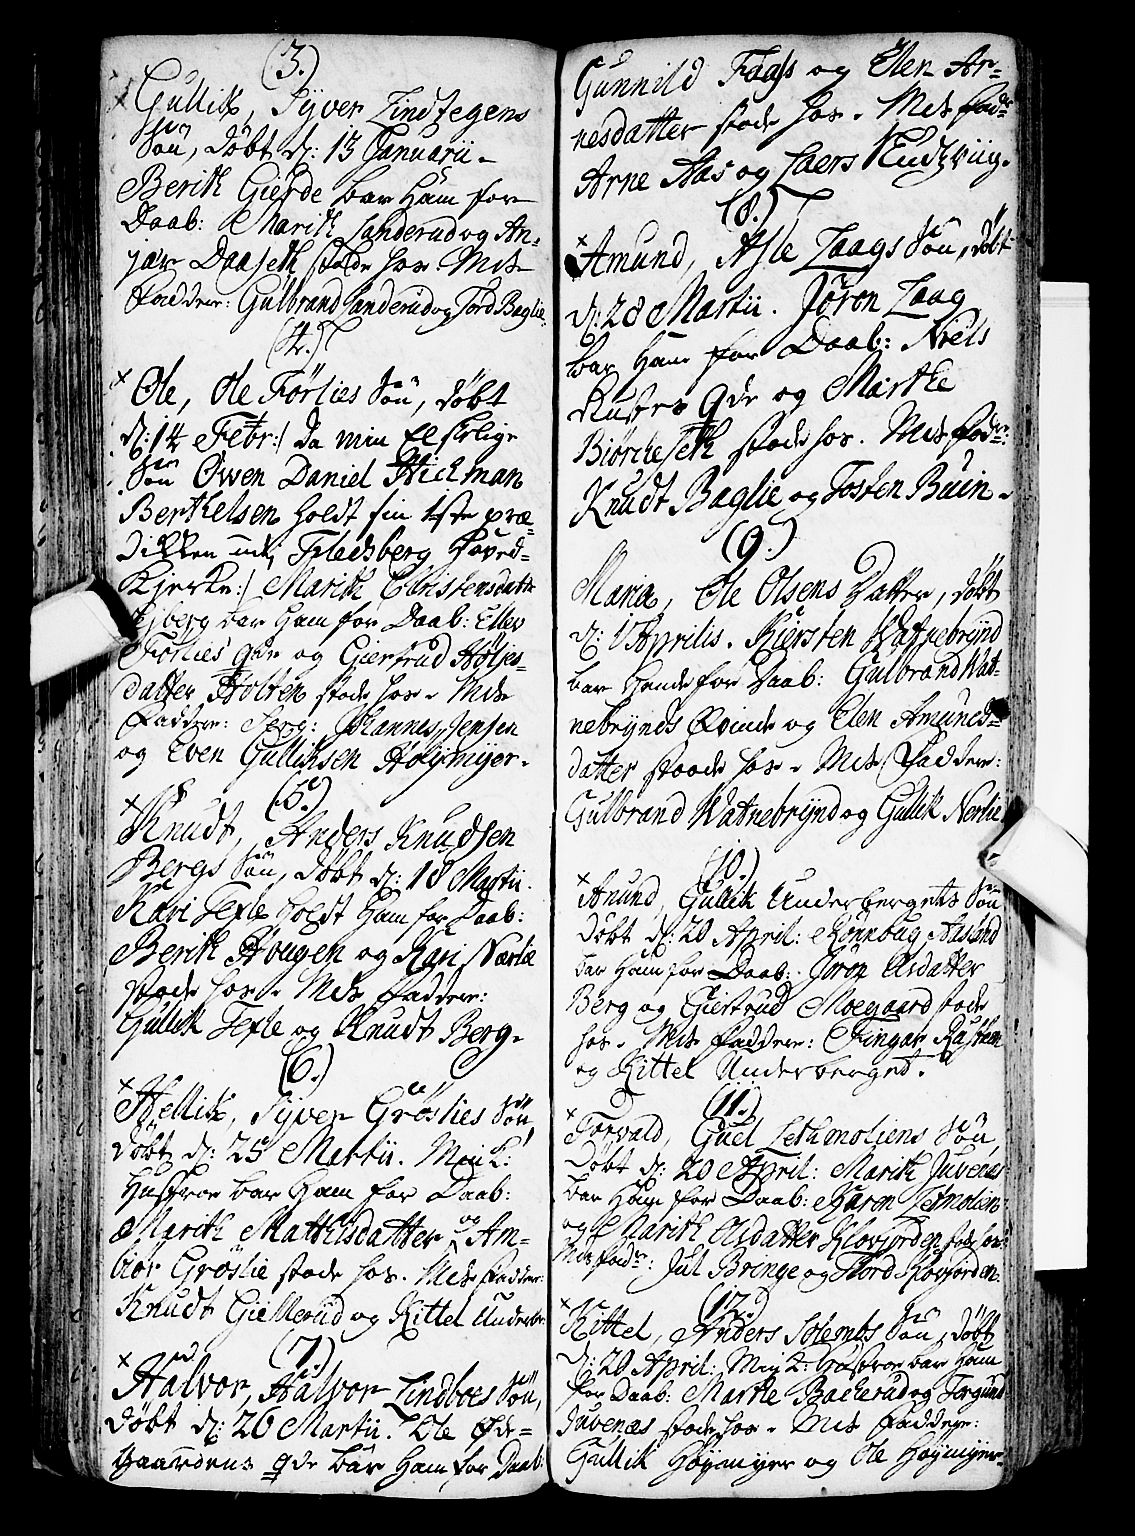 (3.)
Gullik, Syver Lindtegens
Søn, døbt d: 13 Januarii.
Berith Gierde bar ham for
Daab: Marith Sanderud og An-
jær Daaseth stode hos. Mds
Faddere: Gulbrand Sanderud og Tord Baglie.
(4.)
Ole, Ole Førlies Søn, døbt
d: 14 Febr:/ da min Elskelige
Søn Owen Daniel Hickman
Berthelsen holdt sin 1ste præ-
dikken udi Fledsberg Hoved-
Kjerke:/ Marith Christensdattr
bar ham for Daab: Eller
Førlies qde og Giertrud Høljes-
datter Holten stode hos. Mds
Faddere: Serg: Johannes Jensen
og Even Gulliksen Høymyer.
(5.)
Knudt, Anders Knudsen
Bergs Søn, døbt d: 18 Martii.
Kari Tefle holdt ham for Daab:
Berith Hougen og Kari Nærlie
stode hos. Mds faddere:
Gullik Tefle og Knudt Berg.
(6.)
Hellik, Syver Grøslies Søn,
døbt d: 25 Martii. Min K:
Hustroe bar ham for Daab:
Marith Mathisdatter og Am-
biør Grøslie stode hos. Mds Faddere:
Knudt Giellerud og Kittel Underbr.
(7.)
Halvor, Halvor Lindboes Søn,
døbt d: 26 Martii. Ole Øde-
gaardens qde bar ham for Daab:
Gunnild Faas og Elen Ar-
nesdatter stode hos. Mds fadr:
Arne Aas og Laers Kudsviig.
(8.)
Amund, Asle Laags Søn, døbt
d: 28 Martii. Jøron Laag
bar ham for Daab: Niels
Rustes qde og Marthe
Biørcheseth stode hos. Mds fadr:
Knudt Baglie og Tosten Buin.
(9.)
Maria, Ole Olsens Datter, døbt
d: 1 Aprilis. Kiersten Watnebrynd
bar hende for Daab: Gulbrand Wat-
nebrynds Qvinde og Elen Amunds-
datter stoode hos. Mds Faddere:
Gulbrand Watnebrynd og Gullik Nerlie
(10.)
Anund, Gullik Underbergets Søn
døbt d: 20 April: Rønnoug Aaslund
bar ham for Daab: Jøron Olsdatter
Berg og Giertrud Moegaard stode
hos. Mds Faddere: Fingar Rustten
og Kittel Underberget.
(11.)
Torvald, Guel Lethmoliens Søn,
døbt d: 20 April: Marith Juvenæs
bar ham for Daab: Karen Letmolien
og Marith Olsdatter Klovfjorden stode hos:
Mds Fadr: Jul Bringe og Thord Klovfjorden.
(12.)
Kittel, Anders Solembs Søn, døbt
d: 20 April: Min K: Hustroe bar ham
for Daab: Marthe Backerud og Torgun
Juvenæs stode hos. Mds Faddere:
Gullik Høymyer og Ole Høymyer.